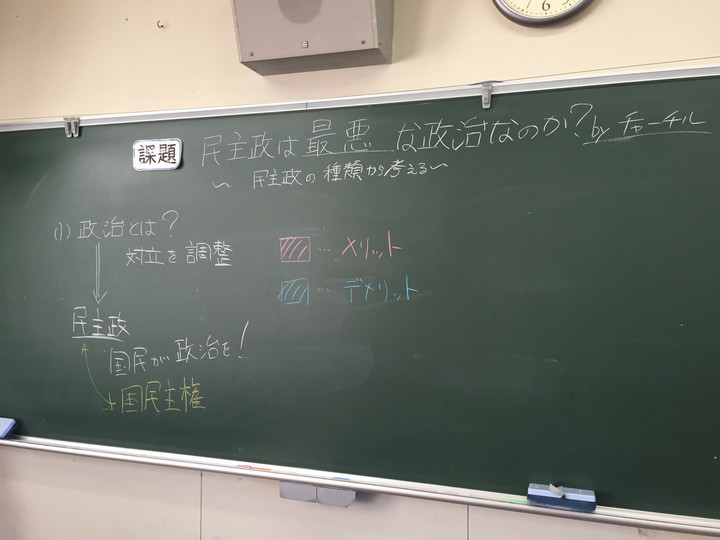 課題 民主政は最悪な政治なのか? by チャーチル
〜 民主政の種類から考える〜
(1) 政治とは?
対立を調整
民主政
国民が政治を!
国民主権
… メリット
… デメリット